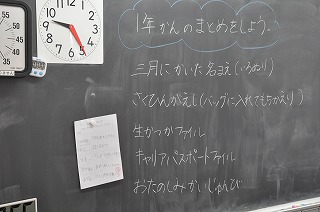 1年かんのまとめをしよう。
三月にかいた名まえ(いろぬり)
さくひんがえし(バッグに入れてもちかえり)
生かつかファイル
キャリアパスポートファイル
おたのしみかいじゅんび